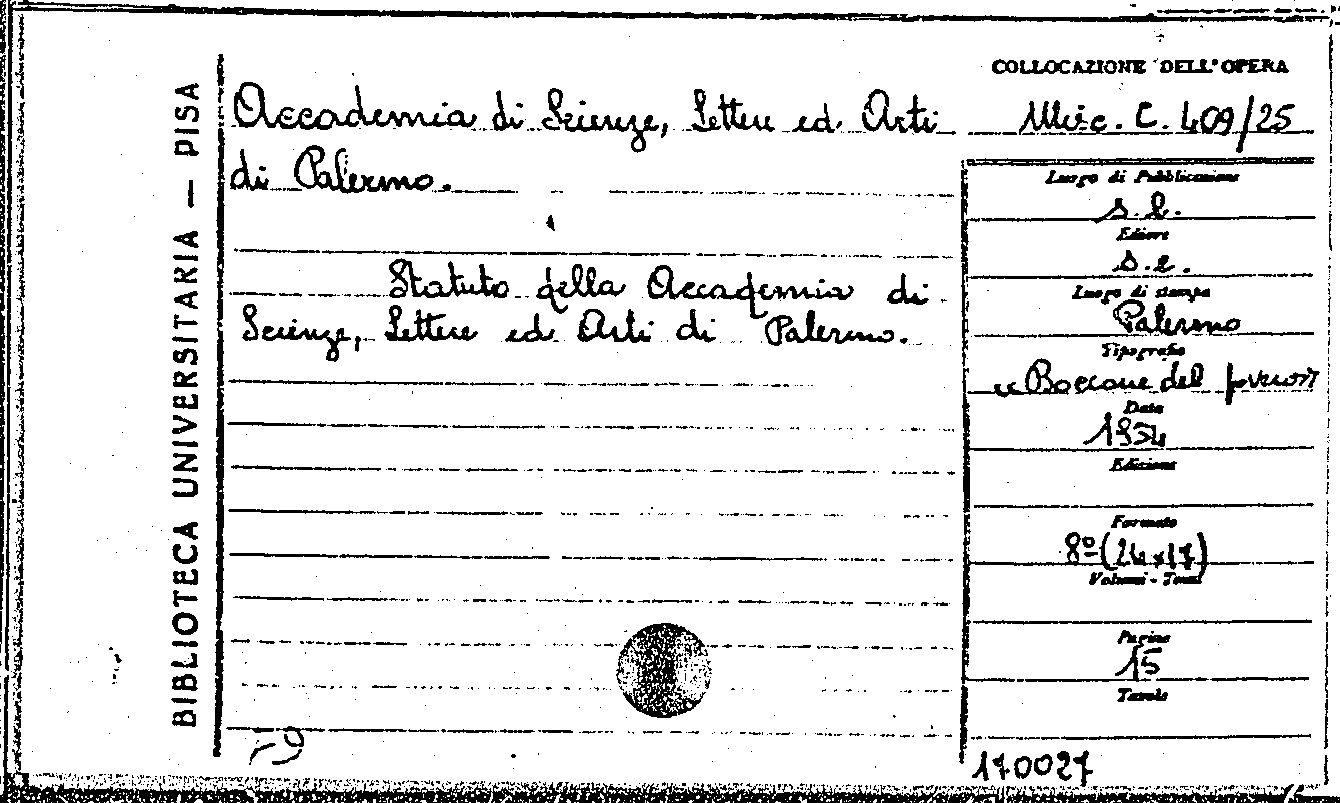 BIBLIOTECA UNIVERSITARIA — PISA
Accademia di Scienze, Lettere ed Arti
di Palermo.
Statuto della Accademia di
Scienze, Lettere ed Arti di Palermo.
COLLOCAZIONE DELL'OPERA
Misc. C. 409/25
Luogo di Pubblicazione
s. l.
Editore
s. e.
Luogo di stampa
Palermo
Tipografia
Boccone del
Data
Edizione
Formato
8º (24x17)
Volumi - Tomi
Pagine
15
Tavole
170027